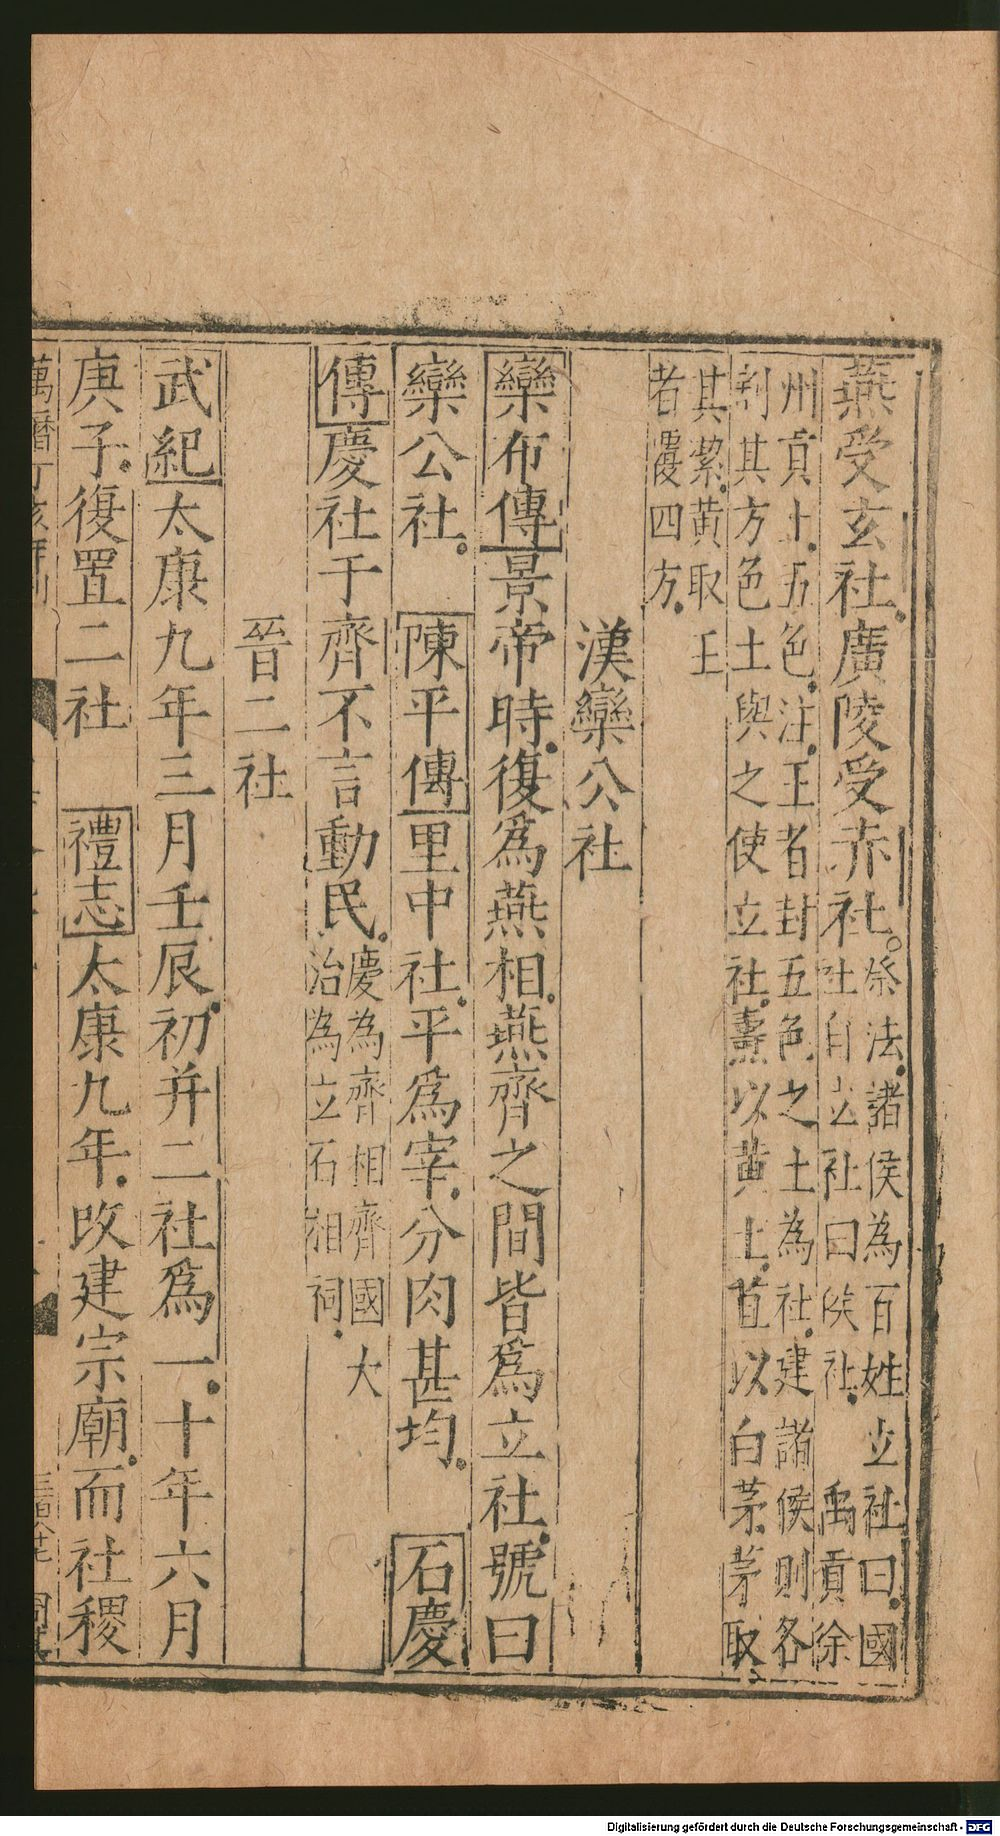 燕受玄社。廣陵受赤社。祭法。諸侯為百姓立社曰。國
社自立社曰侯社。 禹貢徐
州貢土。五色。注。王者封五色之土為社。建諸侯則各
割其方色土與之使立社。燾以黄土。苴以白茅。茅取
其絜。黄取王
者覆四方。
漢欒公社
欒布傳景帝時。復爲燕相。燕齊之間皆爲立社。號曰
欒公社。 陳平傳里中社。平爲宰。分肉甚均。 石慶
傳慶社于齊不言動民。慶為齊相齊國大
治為立石相祠。
晉二社
武紀太康九年三月壬辰。初并二社爲一。十年六月
庚子。復置二社 禮志太康九年。改建宗廟。而社稷
萬曆丁亥年刊
三百八十七
Digitalisierung gefördert durch die Deutsche Forschungsgemeinschaft - DFG